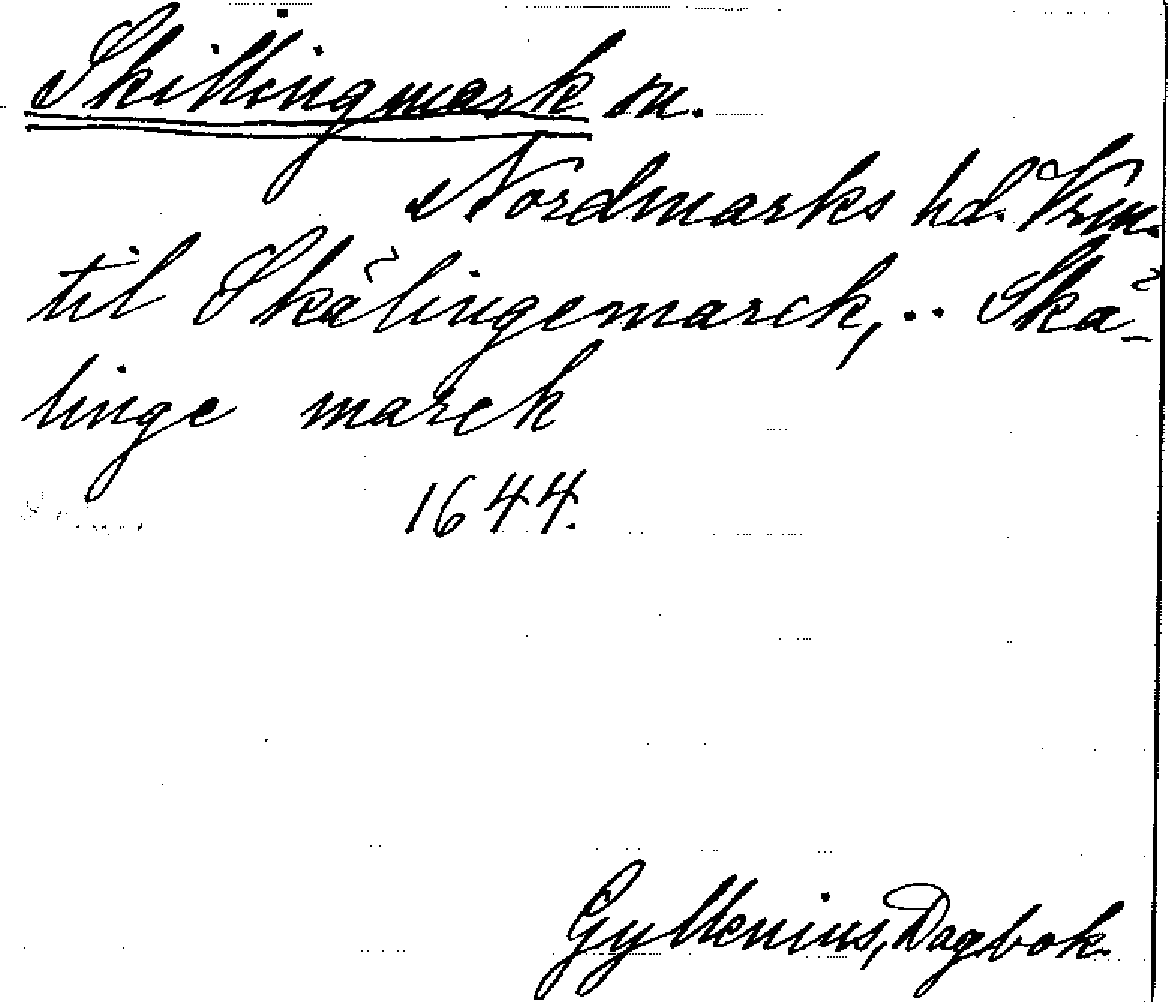 Skillingmark sn.
Nordmarks hd. Vrm.
til Skälingemarck, .. Skä-
linge marck
1644.
Gyllenius, Dagbok.